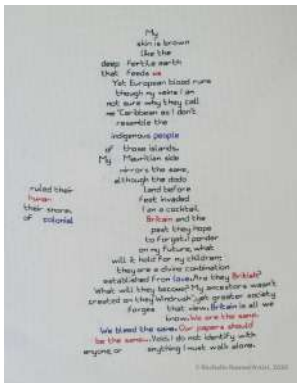 My
skin is brown
like the
deep fertile earth
that feeds us
Yet European blood runs
though my veins I am
not sure why they call
me 'Caribbean as I don't
resemble the
indigenous people
of those islands.
My Mauritian side
mirrors the same,
although the dodo
ruled their land before
human feet invaded
their shores. I am a cocktail,
of colonial Britain and the
past they hope
to forget. I ponder
on my future, what
will it hold for my children;
they are a divine combination
established from love. Are they British?
What will they become? My ancestors wasn't
created on they Windrush', yet greater society
forges that view. Britain is all we
know. We are the same.
We bleed the same. Our papers should
be the same.... Void. I do not identify with
anyone, or anything I must walk alone.